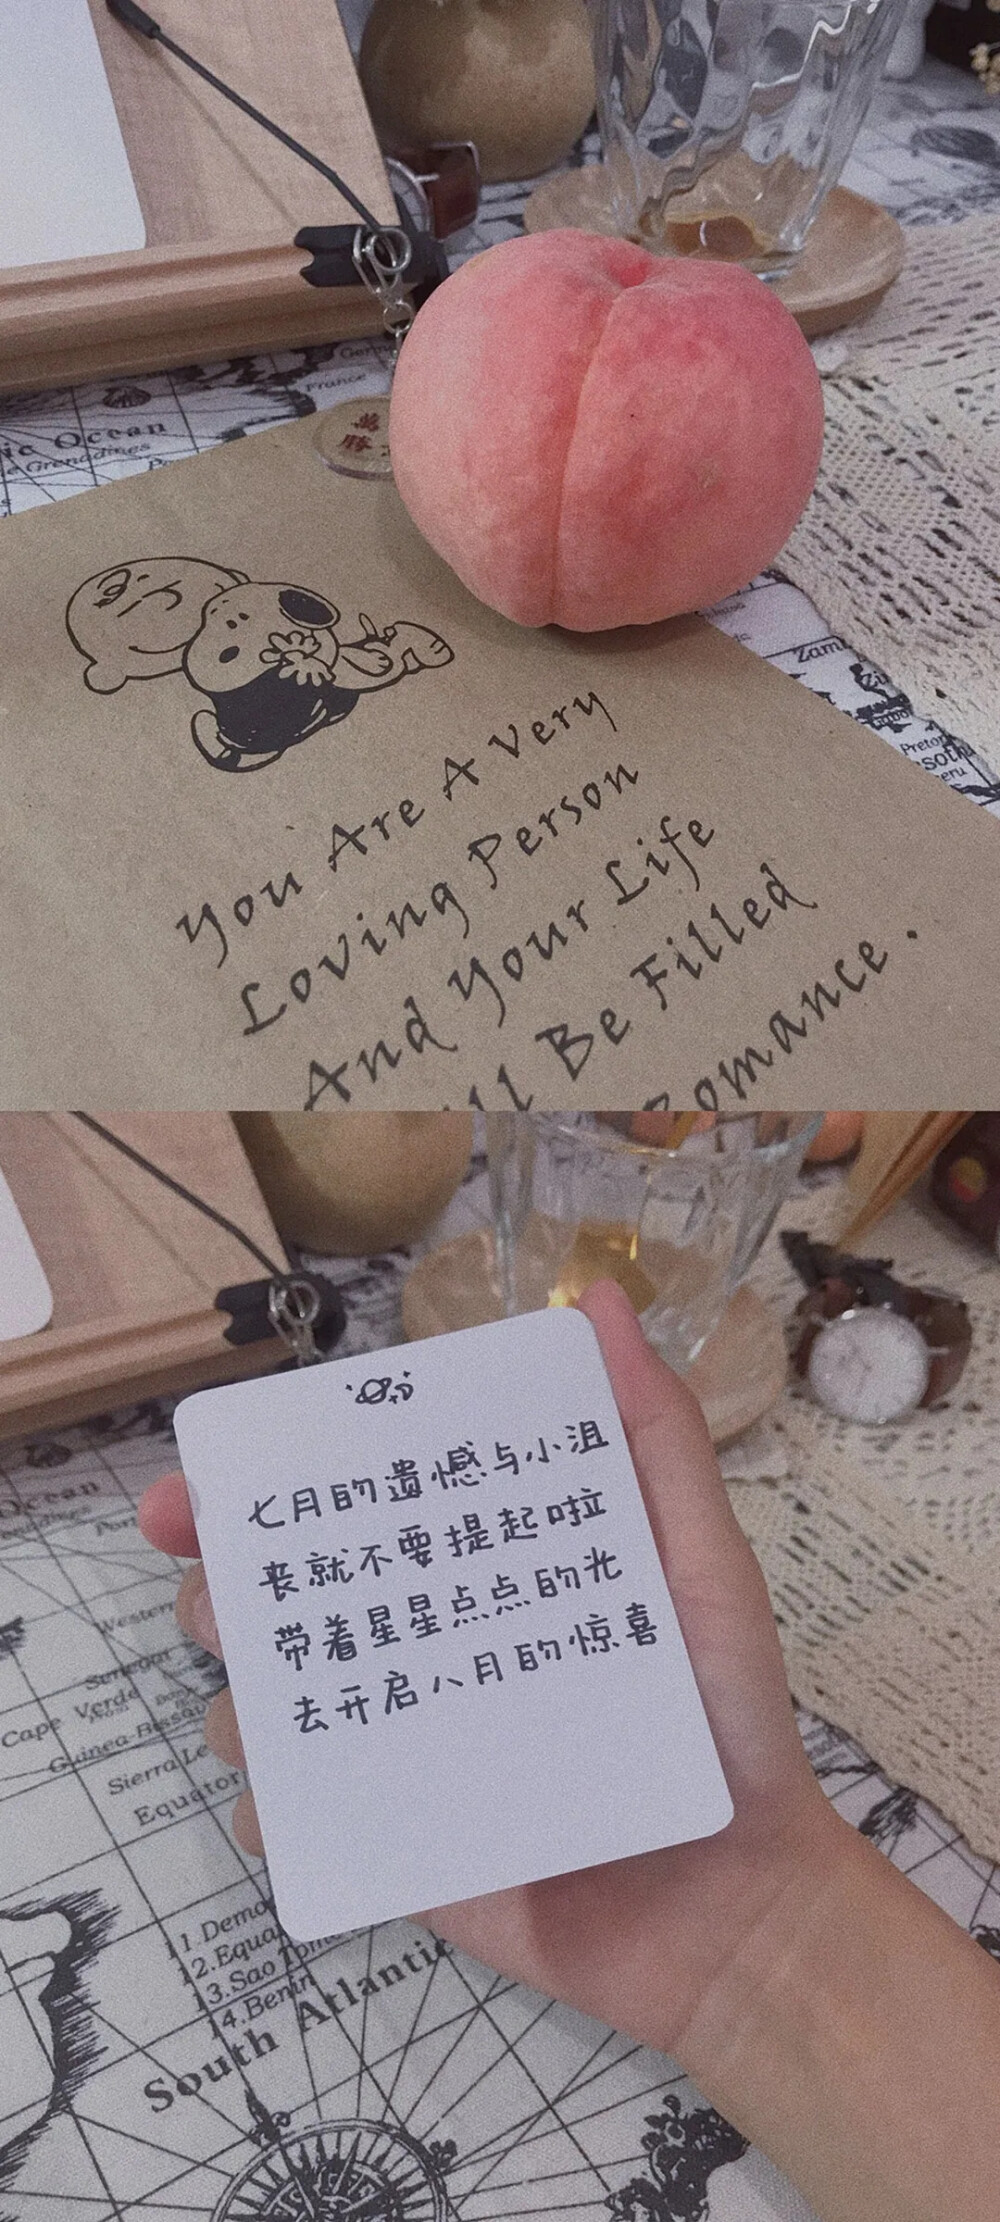 Ocean
Grenadines
France
You Are A Very
Loving Person
And Your Life
Be Filled
Romance.
Ocean
七月的遗憾与小沮
丧就不要提起啦
带着星星点点的光
去开启八月的惊喜
Western
Senegal
Cape Verde
Guinea-Bissau
Sierra Le
Equator
11.Demo
12.Equa
13.Sao Tome
14.Benin
South Atlantic